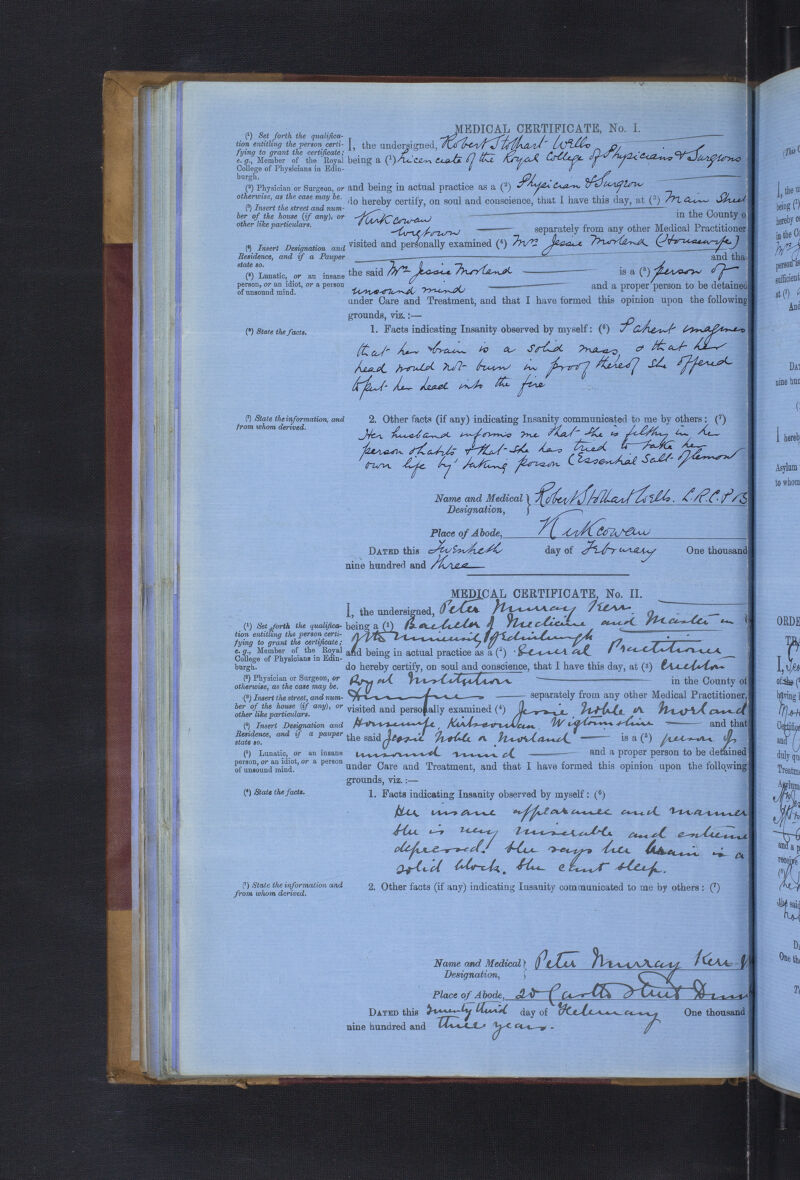 MEDICAL CERTIFICATE, No. I.
(¹) Set forth the qualifica-
tion entitling the person certi-
fying to grant the certificate;
e.g., Member of the Royal
College of Physicians in Edin-
burgh.
(²) Physician or Surgeon, or
otherwise, as the case may be.
(³) Insert the street and num-
ber of the house (if any), or
other like particulars.
(⁴) Insert Designation and
Residence, and if a Pauper
state so.
(⁵) Lunatic, or an insane
person, or an idiot, or a person
of unsound mind.
I, the undersigned, Robert Stothart Wells
being a (¹) Licenciate of the Royal College of Physicians & Surgeons
and being in actual practice as a (²) Physician & Surgeon
do hereby certify, on soul and conscience, that I have this day, at (³) Main Street
Kirkcowan in the County o
Wigtown separately from any other Medical Practitioner
visited and personally examined (⁴) Mrs Jessie Morland (Housewife)
and tha
the said Mrs Jessie Morland is a (⁵) person of
unsound mind and a proper person to be detained
under Care and Treatment, and that I have formed this opinion upon the following
grounds, viz.:—
(⁶) State the facts.
1. Facts indicating Insanity observed by myself: (⁶) Patient imagines
that her brain is a solid mass, & that her
head would not burn in proof thereof she offered
to put her head into the fire
(⁷) State the information, and
from whom derived.
2. Other facts (if any) indicating Insanity communicated to me by others: (⁷)
Her husband informs me that she is filthy in her
person & habits & that she has tried to take her
own life by taking poison (Essential Salt of Lemon
Name and Medical Designation, Robert Stothart Wells. L.R.C.P
Place of Abode, Kirkcowan
DATED this Twentieth day of February One thousand
nine hundred and three
MEDICAL CERTIFICATE, No. II.
(¹) Set forth the qualifica-
tion entitling the person certi-
fying to grant the certificate;
e.g., Member of the Royal
College of Physicians in Edin-
burgh.
(²) Physician or Surgeon, or
otherwise, as the case may be.
(³) Insert the street, and num-
ber of the house (if any), or
other like particulars.
(⁴) Insert Designation and
Residence, and if a pauper
state so.
(⁵) Lunatic, or an insane
person, or an idiot, or a person
of unsound mind.
I, the undersigned, Peter Murray Kerr
being a (¹) Bachelor of Medicine and Master in
of the University of Edinburgh
and being in actual practice as a (²) General Practitioner
do hereby certify, on soul and conscience, that I have this day, at (³) Crichton
Royal Institution in the County of
Dumfries separately from any other Medical Practitioner,
visited and personally examined (⁴) Jessie Noble or Morland
Housewife, Kirkcowan, Wigtownshire and that
the said Jessie Noble or Morland is a (⁵) person of
unsound mind and a proper person to be detained
under Care and Treatment, and that I have formed this opinion upon the following
grounds, viz.:—
(⁶) State the facts.
1. Facts indicating Insanity observed by myself: (⁶)
Her insane appearance and manner
She is very miserable and extreme
depressed. She says her brain is a
solid block. She cant sleep.
(⁷) State the information and
from whom derived.
2. Other facts (if any) indicating Insanity communicated to me by others: (⁷)
Name and Medical Designation, Peter Murray Kerr
Place of Abode, 20 Castle Street Dum
DATED this Twenty third day of February One thousand
nine hundred and three years.